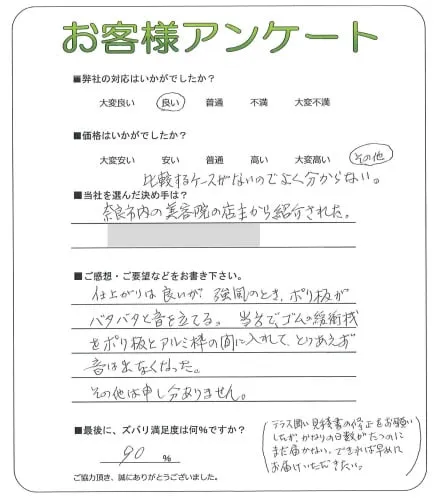 お客様アンケート
■弊社の対応はいかがでしたか?
大変良い 良い 普通 不満 大変不満
■価格はいかがでしたか?
大変安い 安い 普通 高い 大変高い その他
比較するケースがないのでよく分からない。
■当社を選んだ決め手は?
奈良市内の美容院の店主から紹介された。
■ご感想・ご要望などをお書き下さい。
仕上がりは良いが、強風のとき、ポリ板が
バタバタと音を立てる。当方で、ゴムの緩衝材
をポリ板とアルミ枠の間に入れて、とりあえず
音は出なくなった。
その他は申し分ありません。
■最後に、ズバリ満足度は何%ですか?
90 %
ご協力頂き、誠にありがとうございました。
テラス囲い見積書の修正をお願い
したが、かなりの日数がたつのに
まだ届かない。できれば早めに
お届けいただきたい。